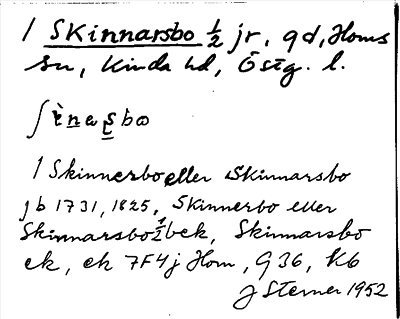 1 Skinnarsbo ½ jr, gd, Homs
sn, Kinda hd, Östg. l.
ʃènaʂbω
1 Skinnerbo eller Skinnarsbo
jb 1731, 1825, Skinnerbo eller
Skinnarsbo ½ bek, Skinnarsbo
ek, ek 7F4j Hom, G36, K6
J Sterner 1952